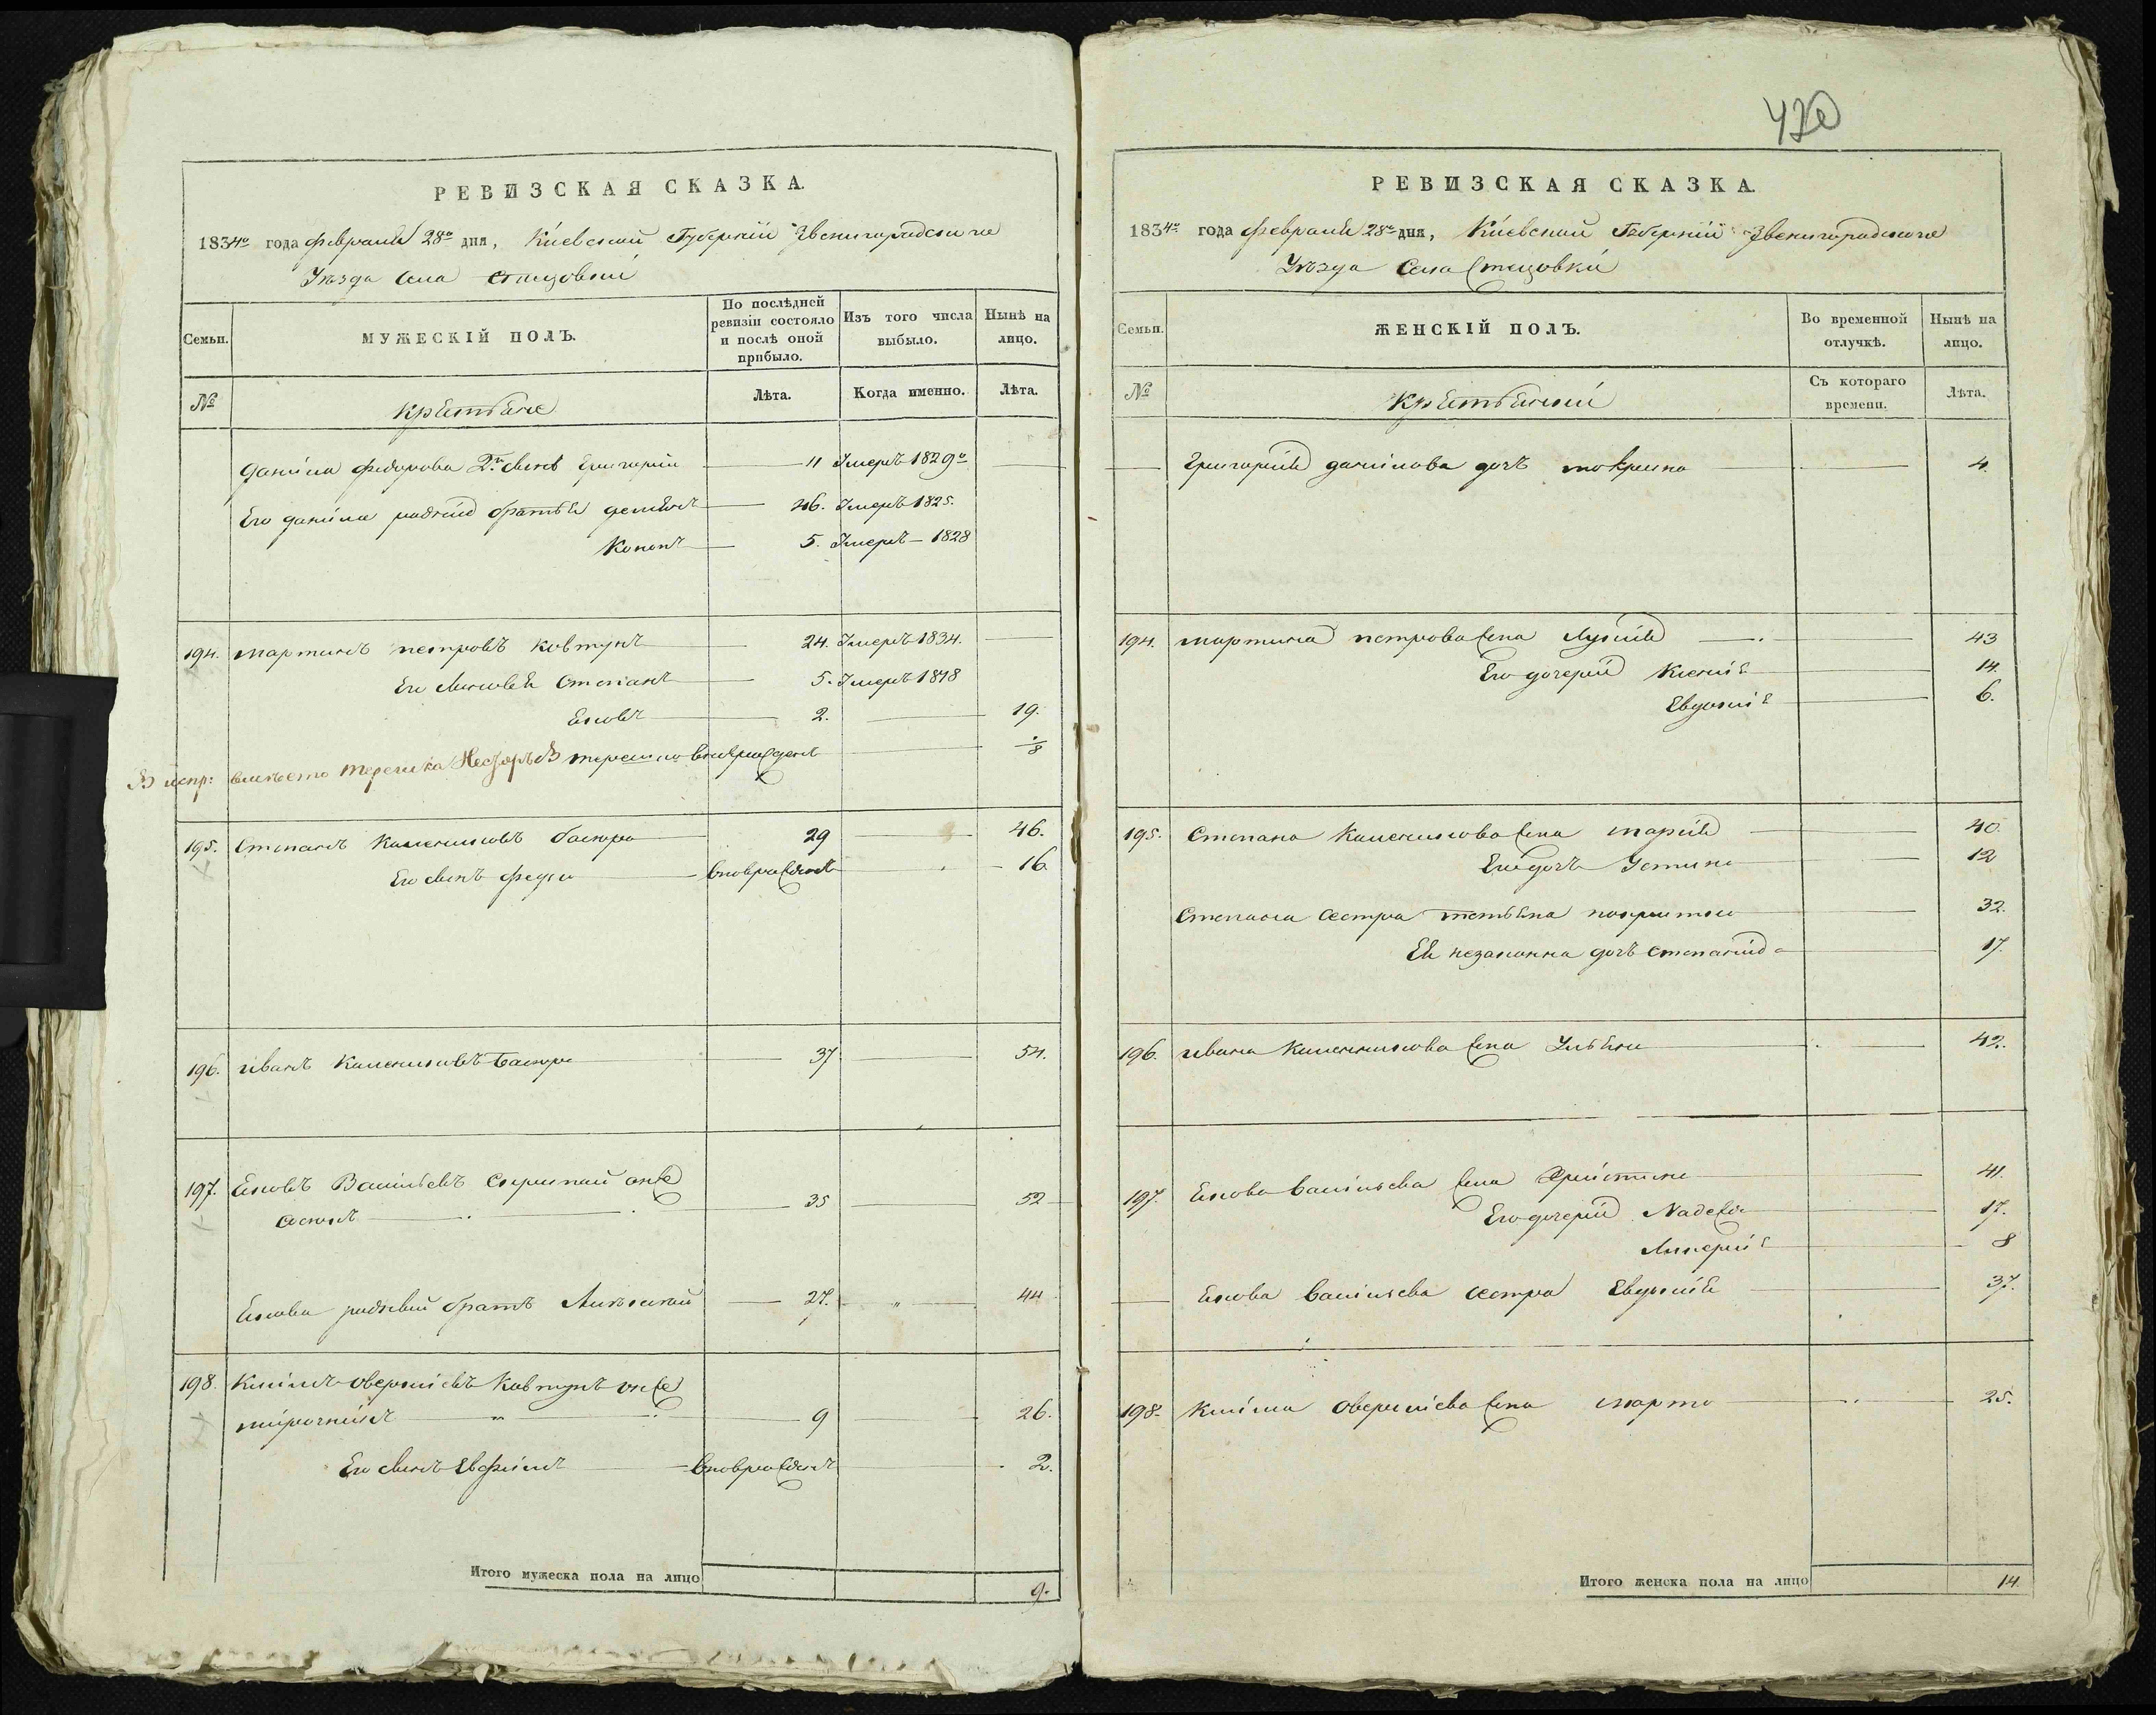 420
РЕВИЗСКАЯ СКАЗКА.
1834го года февраля 28го дня, Кіевской Губерніи Звенигородскаго
Уѣзда Села Стецовки
Семьи.
МУЖЕСКІЙ ПОЛЪ.
По послѣдней ревизіи состояло и послѣ оной прибыло.
Изъ того числа выбыло.
Нынѣ на лицо.
№
Крестьяне
Лѣта.
Когда именно.
Лѣта.
Даніила Федорова 2й сынъ Григорій 11 Умеръ 1829го
Его Даніила родній братья Демьянъ 46. Умеръ 1825.
Кононъ 5. Умеръ 1828
194. Мартинъ Петровъ Ковтунъ 24. Умеръ 1834.
Его сыновья Степанъ 5. Умеръ 1818
Яковъ 2. 19.
вмѣсто Терешка 8
195. Степанъ Калениковъ 29 46.
Его сынъ Федор Вноврожденъ 16
196. Иванъ Калениковъ 37 54.
197. Яковъ Васильевъ Скрипай онже
35 52
Якова родный братъ Алексѣй 27. 44
198. Климъ Оверкіевъ Ковтунъ онже
9 26.
Его сынъ Евфимъ Вноврожденъ 2.
Итого мужеска пола на лицо 9.
РЕВИЗСКАЯ СКАЗКА.
1834го года февраля 28го дня, Кіевской Губерніи Звенигородскаго
Уѣзда Села Стецовки
Семьи.
ЖЕНСКІЙ ПОЛЪ.
Во временной отлучкѣ.
Нынѣ на лицо.
№
Крестьянки
Съ котораго времени.
Лѣта.
Григорія Данилова дочъ Мокрина 4.
194. Мартина Петрова жена Лукія 43
Его дочери Ксенія 14.
Евдокія 6.
195. Степана Каленикова жена Марія 40.
Его дочъ Устина 12
Степана сестра Тетьяна покритка 32.
Ея незаконна дочъ Степанида 17.
196. Ивана Каленикова жена Ульяна 42.
197. Якова Васильева жена Христина 41.
Его дочери Надежда 17.
8
Якова Васильева сестра Евдокія 37.
198. Клима Оверкіева жена Марта 25.
Итого женска пола на лицо 14.